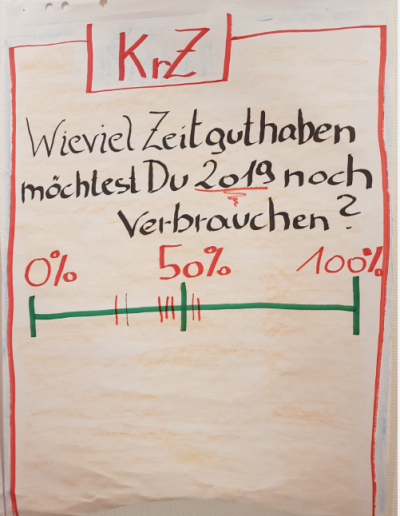 KrZ
Wieviel Zeitguthaben
möchtest Du 2019 noch
verbrauchen?
0% 50% 100%